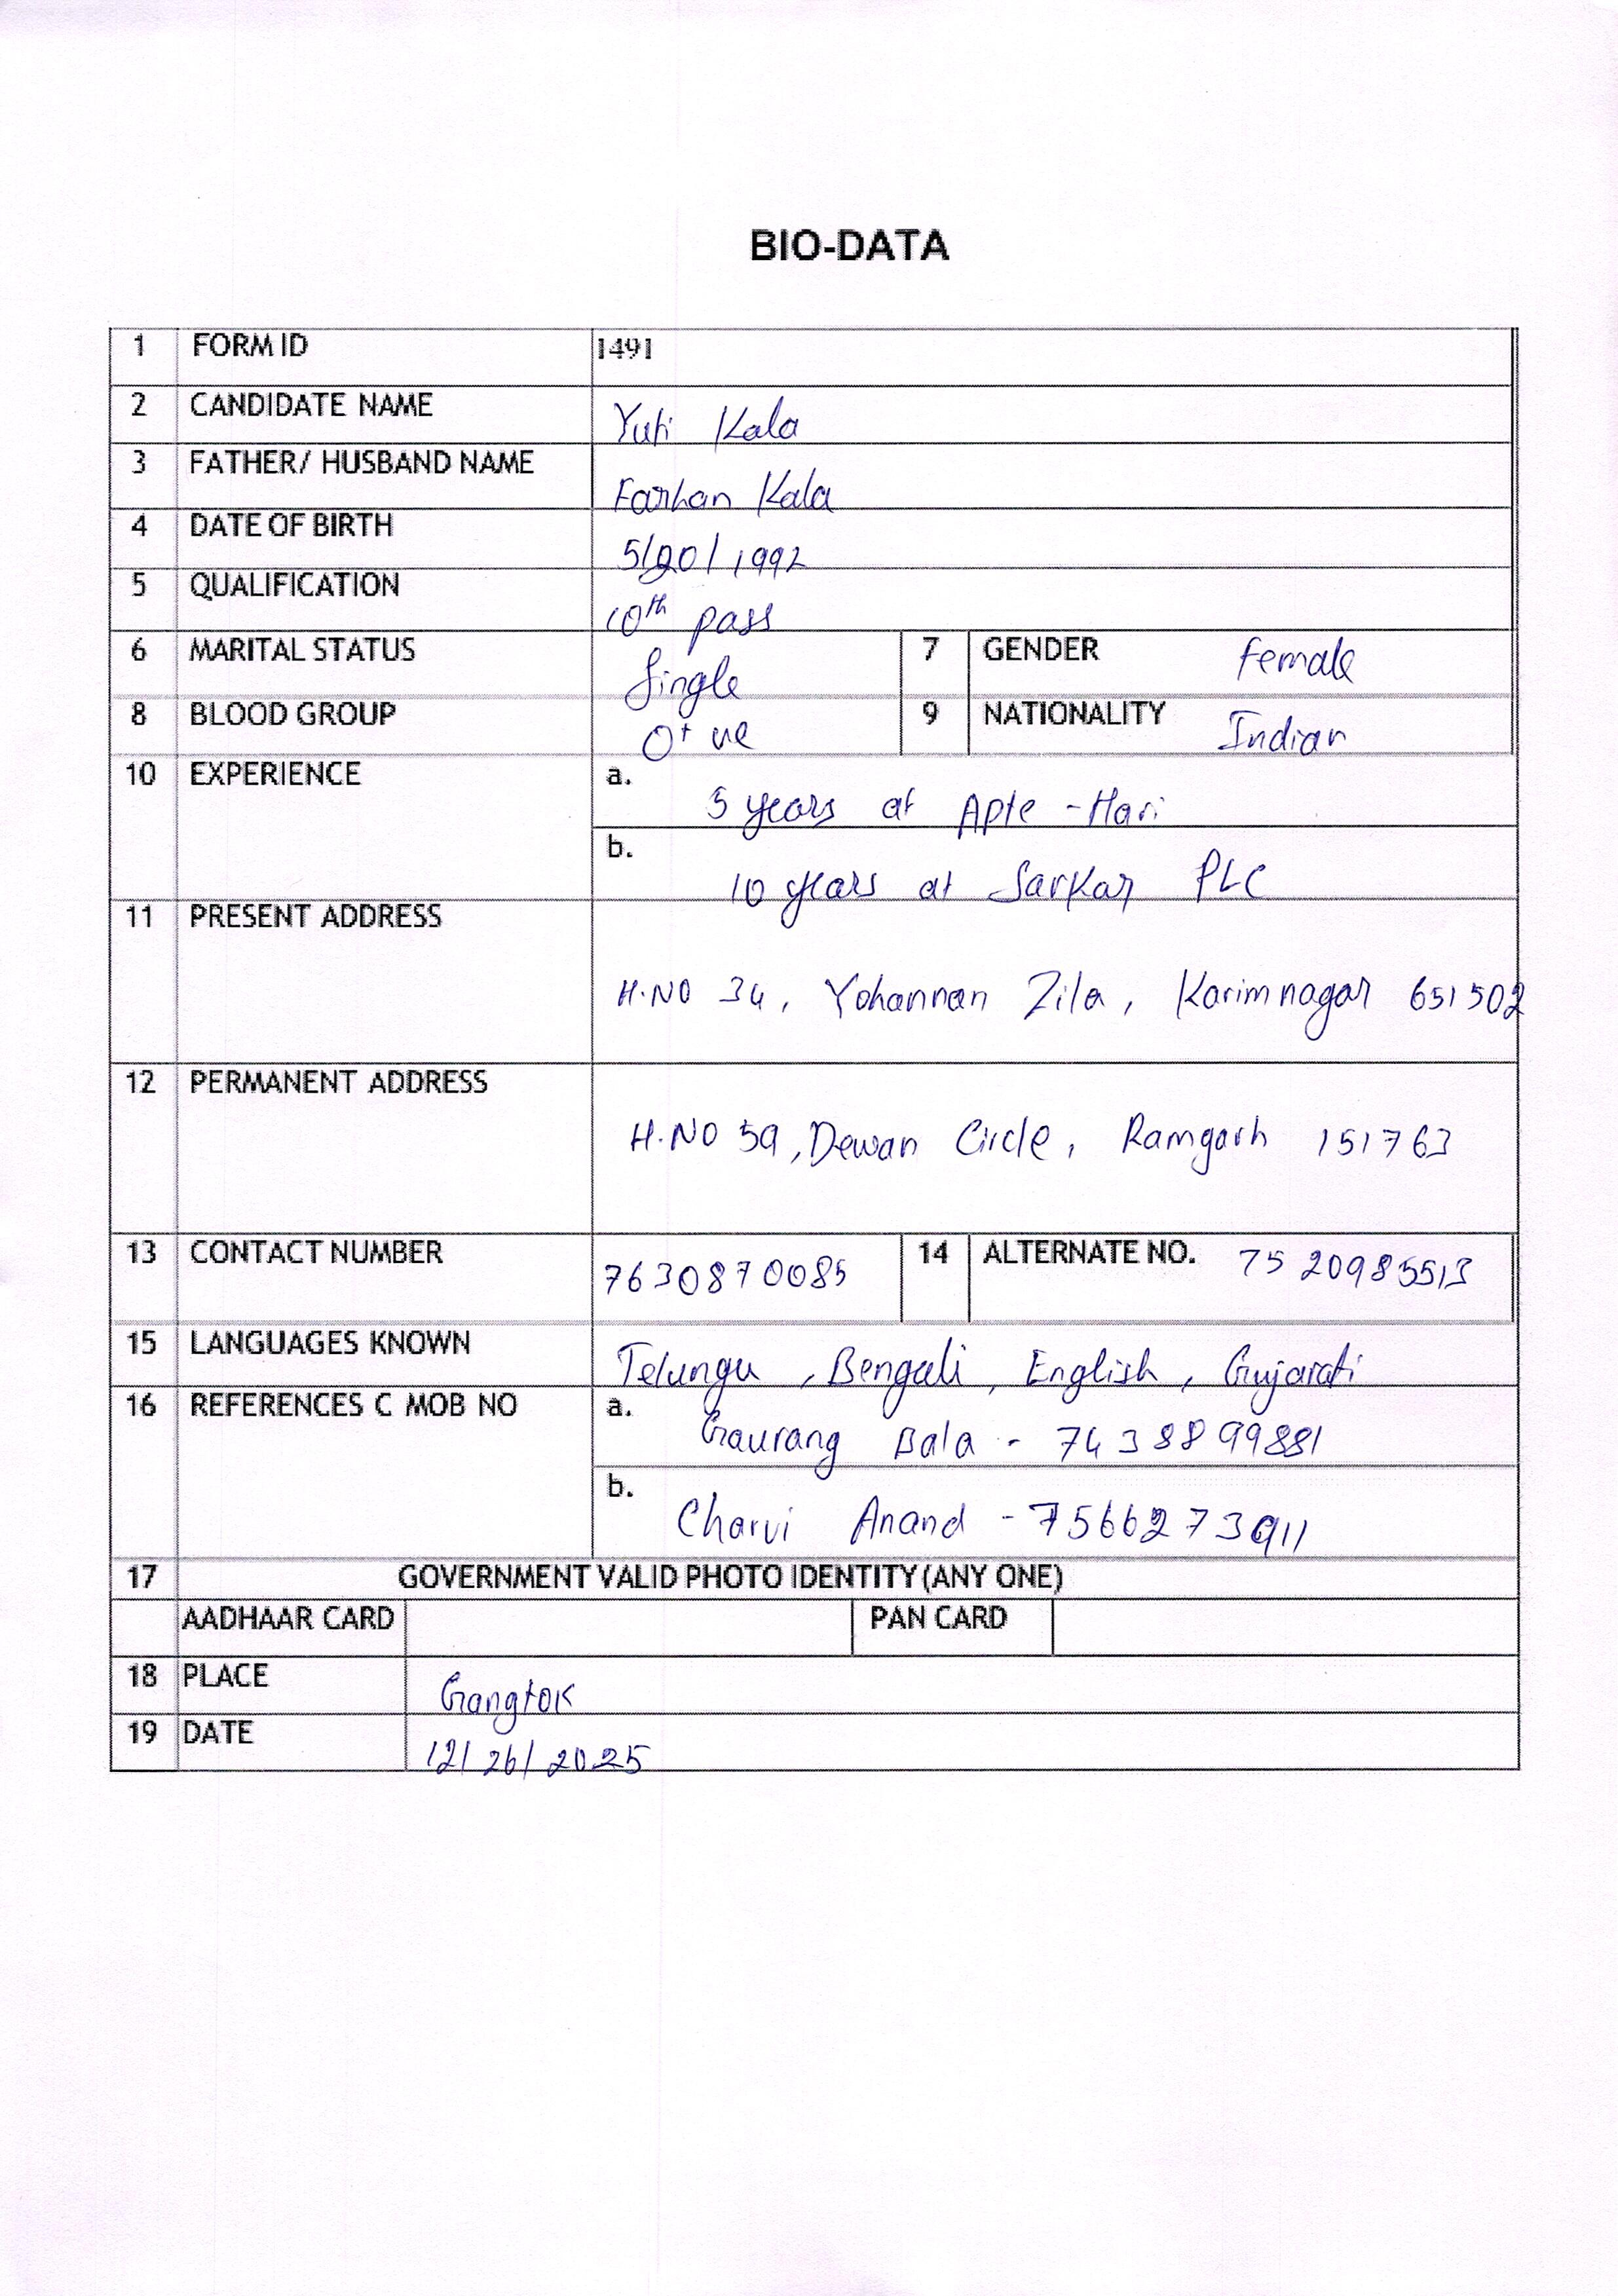 BIO-DATA
1 FORM ID 1491
2 CANDIDATE NAME Yuti Kala
3 FATHER/ HUSBAND NAME Farhan Kala
4 DATE OF BIRTH 5/20/1992
5 QUALIFICATION 10th pass
6 MARITAL STATUS Single 7 GENDER Female
8 BLOOD GROUP O+ ve 9 NATIONALITY Indian
10 EXPERIENCE a. 5 years at Apte - Hari
b. 10 years at Sarkar PLC
11 PRESENT ADDRESS
H.NO 34, Yohannan Zila, Karimnagar 651502
12 PERMANENT ADDRESS
H.NO 59, Dewan Circle, Ramgarh 151763
13 CONTACT NUMBER 7630870085 14 ALTERNATE NO. 7520985513
15 LANGUAGES KNOWN Telungu, Bengali, English, Gujarati
16 REFERENCES C MOB NO a. Gaurang Bala - 7438899881
b. Charvi Anand - 7566273911
17 GOVERNMENT VALID PHOTO IDENTITY(ANY ONE)
AADHAAR CARD PAN CARD
18 PLACE Gangtok
19 DATE 12/26/2025